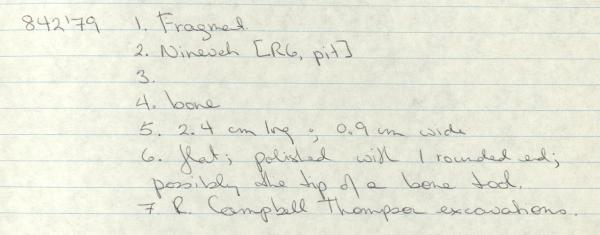 842'79 1. Fragment
2. Nineveh [R6, pit]
3.
4. bone
5. 2.4 cm lng; 0.9 cm wide
6. flat; polished with 1 rounded end;
possibly the tip of a bone tool.
7 R. Campbell Thompson excavations.